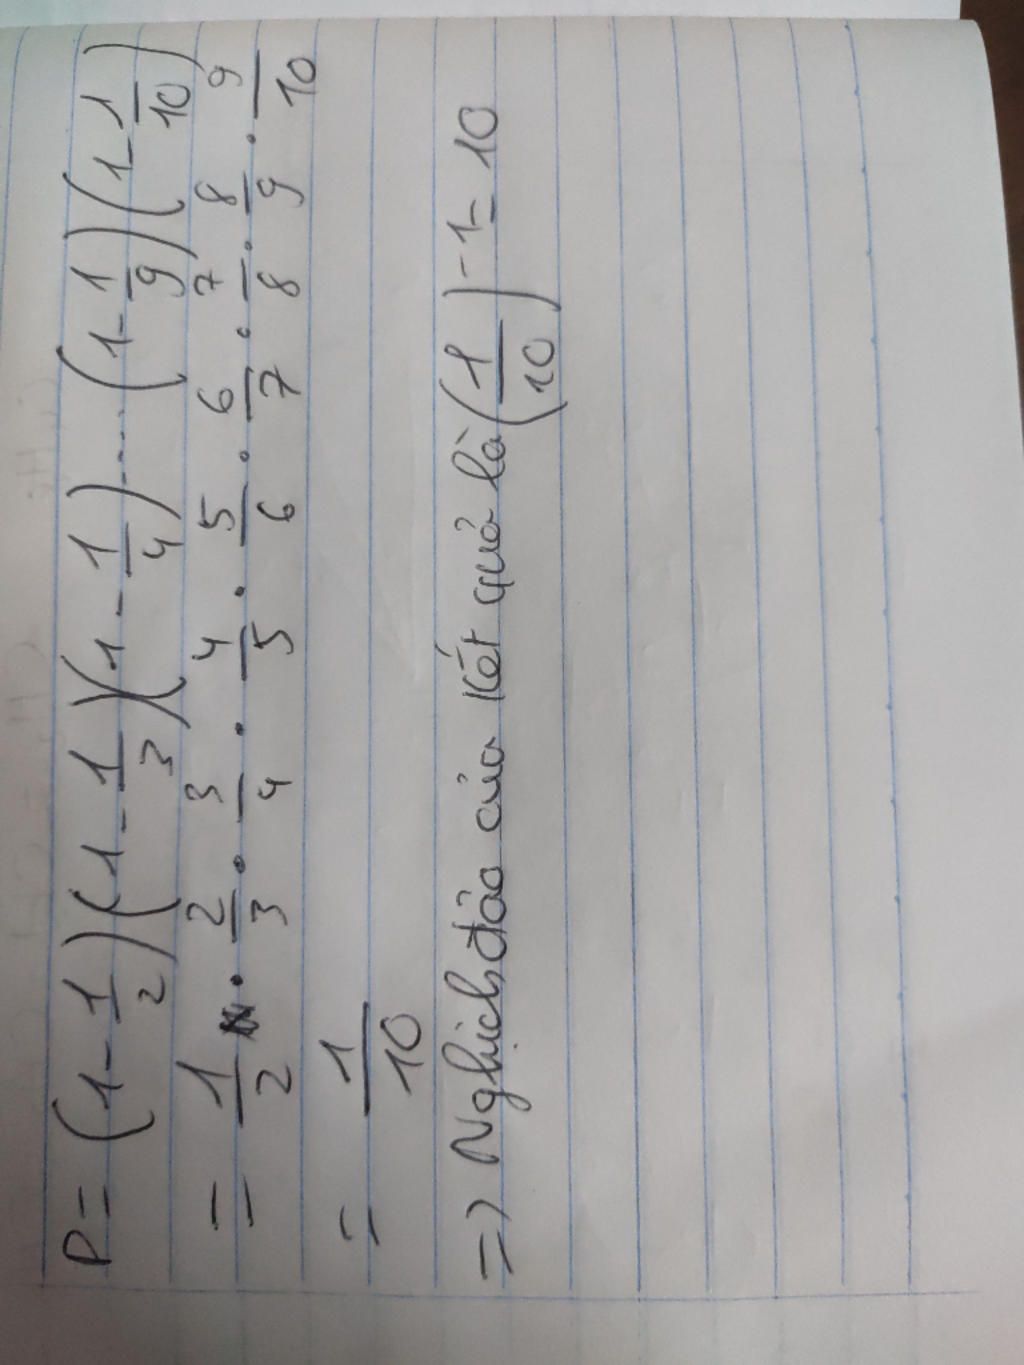 P = (1 - 1/2)(1 - 1/3)(1 - 1/4)....(1 - 1/9)(1 - 1/10)
= 1/2 . 2/3 . 3/4 . 4/5 . 5/6 . 6/7 . 7/8 . 8/9 . 9/10
= 1/10
=> Nghịch đảo của kết quả là (1/10)^-1 = 10